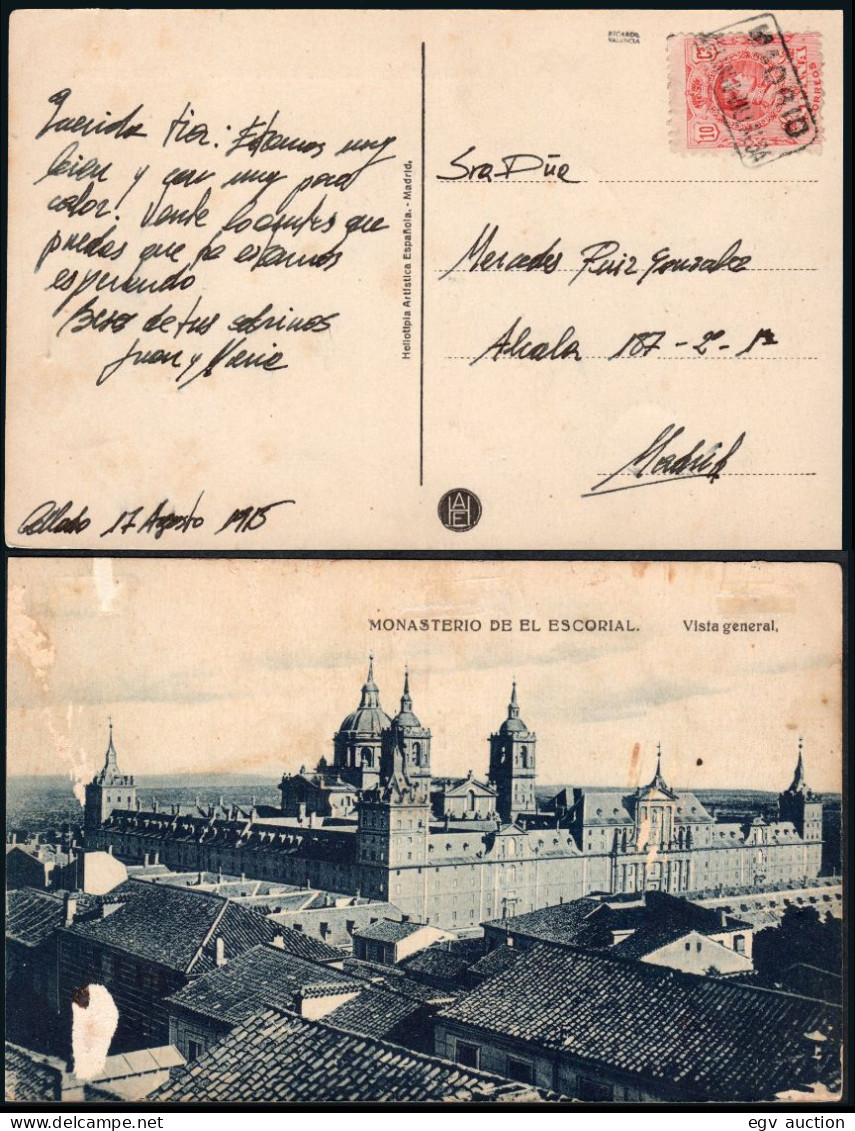 RICARDO
VALENCIA
10
CORREOS
MADRID
Querida tia: Estamos muy
bien y con muy poco
calor. Vente lo antes que
puedas que te estamos
esperando
Besos de tus sobrinos
Juan y Maria
Collado 17 Agosto 1915
Heliotipia Artística Española. - Madrid.
Sra Dña
Mercedes Ruiz Gonzalez
Alcala 187 - 2º - 1ª
Madrid
HAE
MONASTERIO DE EL ESCORIAL. Vista general,
egv auction